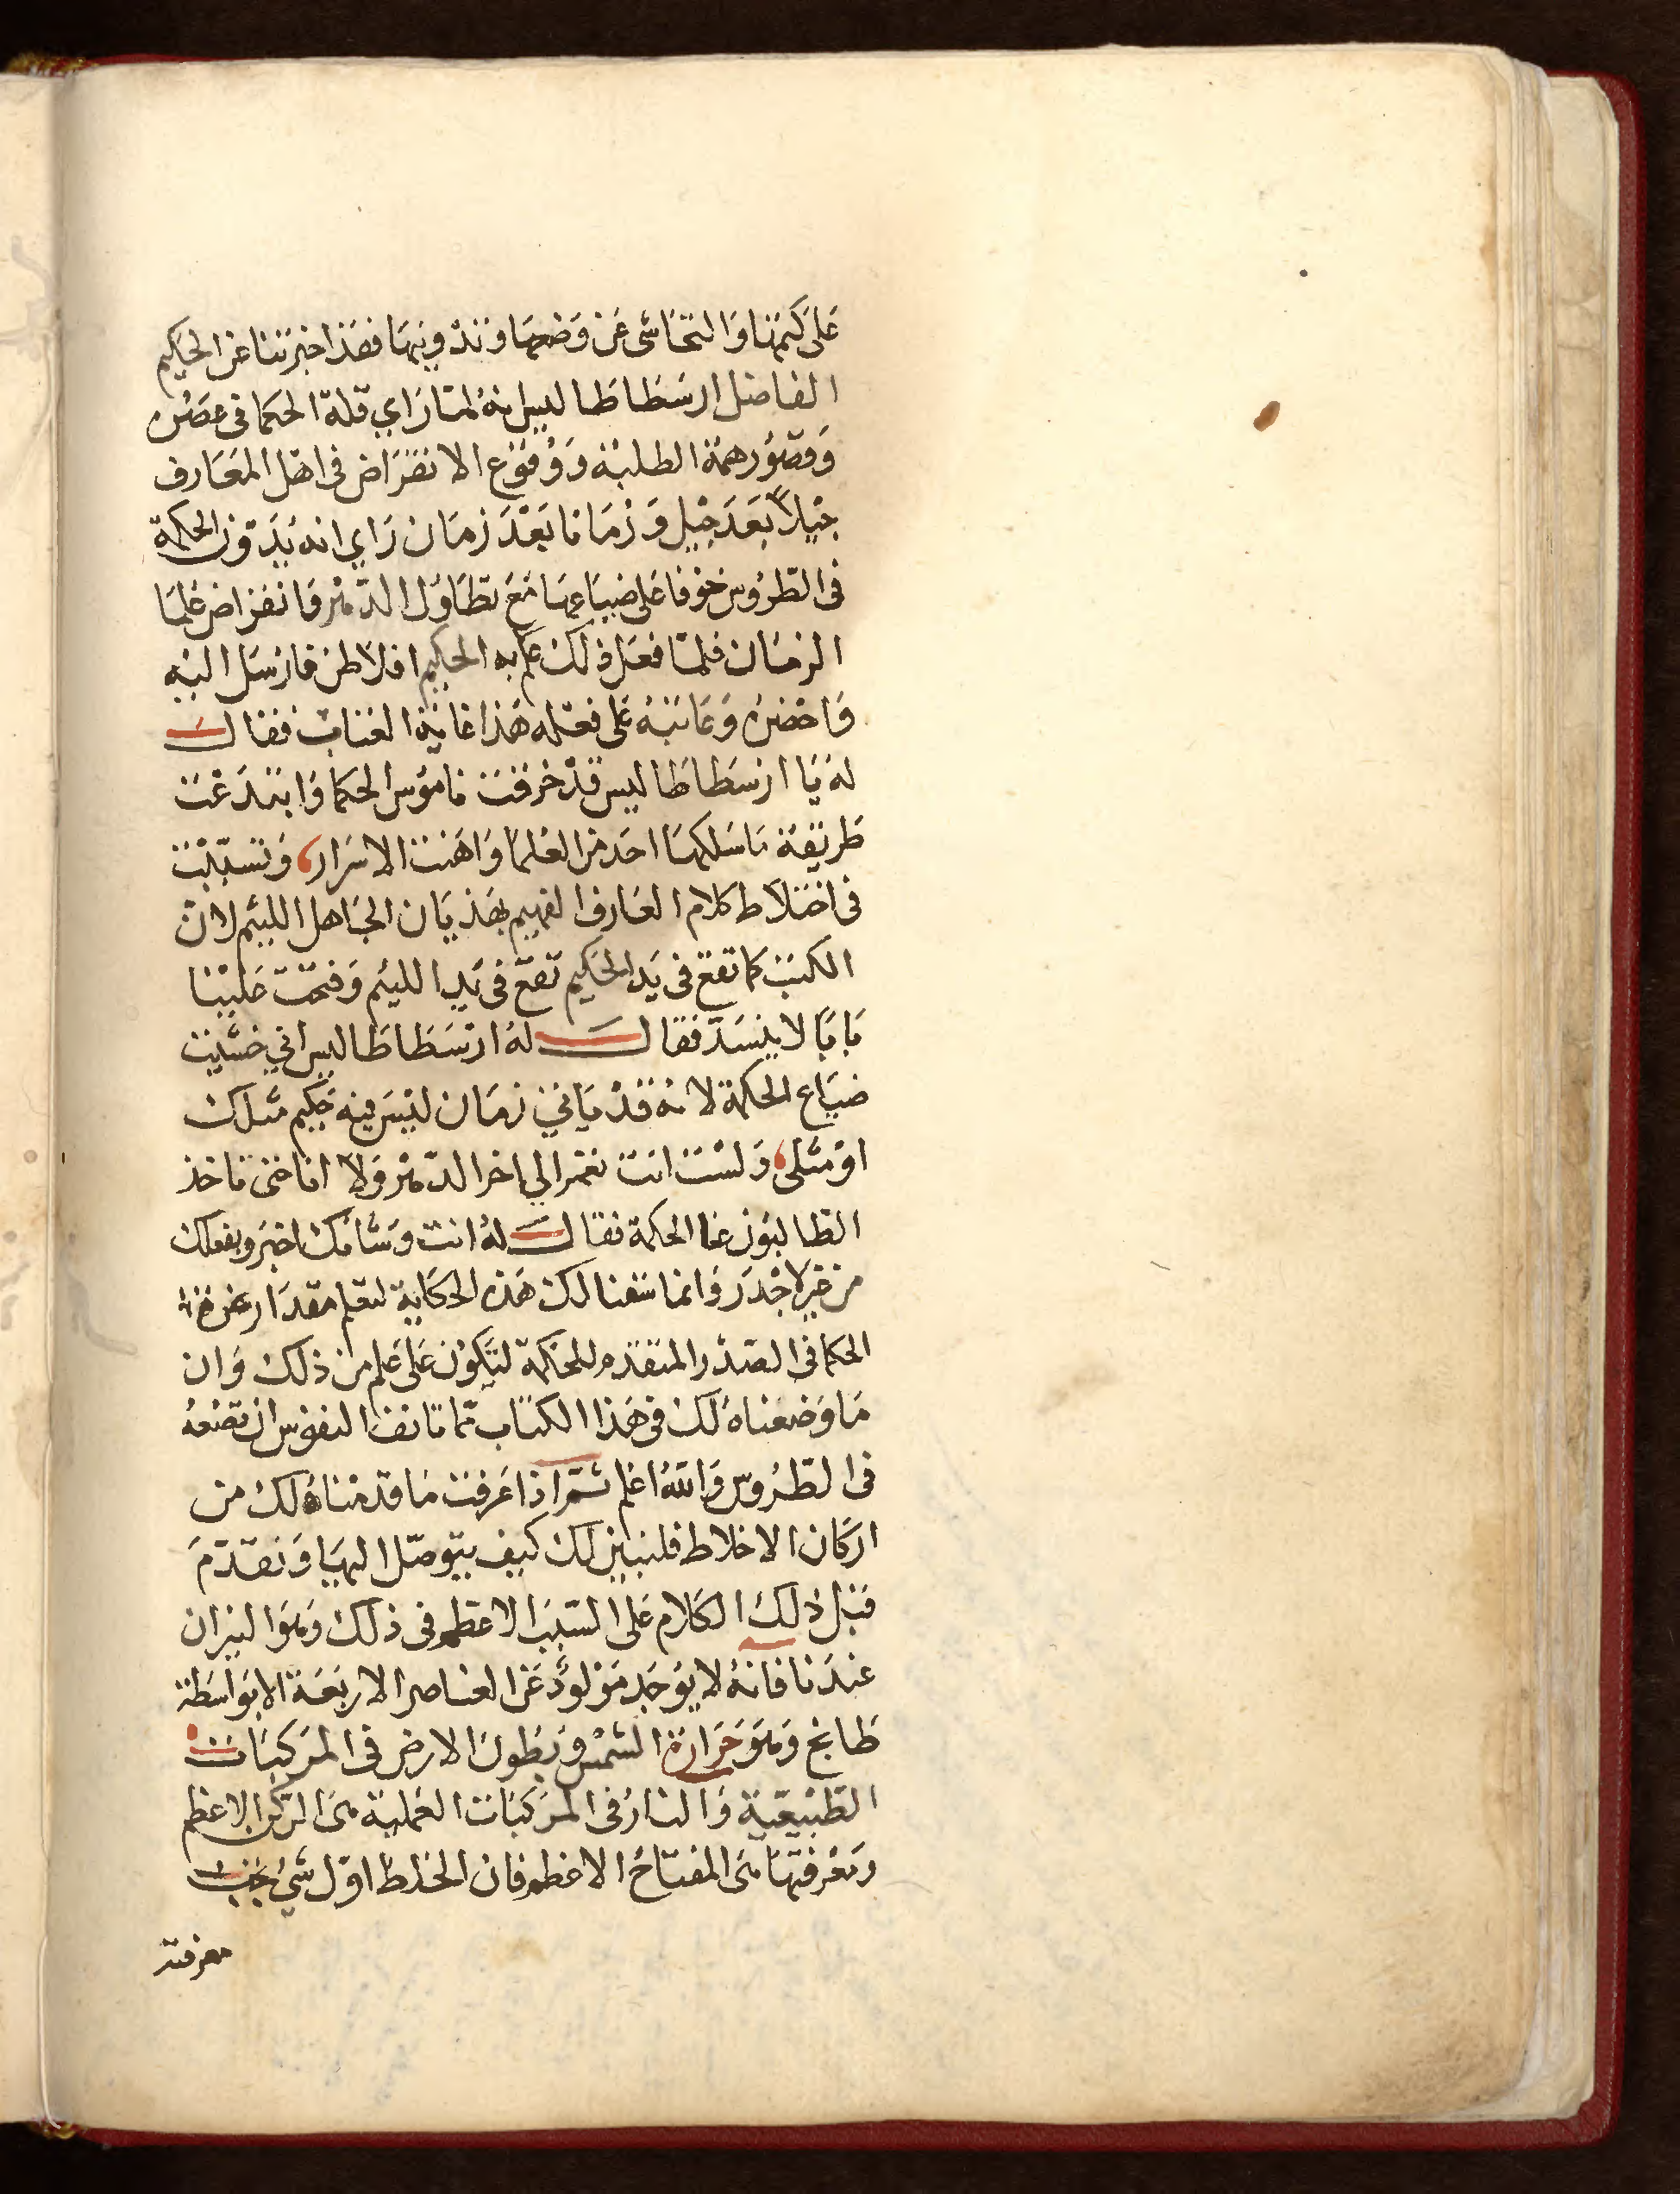 على كتمها والتحاشى عن وضعها وتدوينها فقد اخبرتنا عن الحكيم
الفاضل ارسطاطاليس انه لما راي قلة الحكما فى عصره
وقصور همة الطلبة ووقوع الانقراض فى اهل المعارف
جيلاً بعد جيل وزمانا بعد زمان راي انه يدون الحكمة
فى الطروس خوفا على ضياعها مع تطاول الدهر وانقراض علما
الزمان فلما فعل ذلك علم به الحكيم افلاطن فارسل اليه
واحضره وعاتبه على فعله هذا غاية العتاب فقال
له يا ارسطاطاليس قد خرقت ناموس الحكما وابتدعت
طريقة ما سلكها احد من العلما واهنت الاسرار، وتسببت
فى اختلاط كلام العارف الفهيم بهذيان الجاهل اللئيم لان
الكتب كما تقع فى يد الحكيم تقع فى يد اللئيم وفتحت علينا
بابًا لا ينسد فقال له ارسطاطاليس اني خشيت
ضياع الحكمة لانه قد ياتي زمان ليس فيه حكيم مثلك
او مثلى، ولست انت تعمر الي اخر الدهر ولا انا حتى تاخذ
الطالبون عنا الحكمة فقال له انت وشانك اخبر وبفعلك
من غيرك اجدر وانما سقنا لك هذه الحكاية لتعلم مقدار
الحكما فى الصدر المتقدم للحكمة لتكون على علم من ذلك وان
ما وضعناه لك فى هذا الكتاب مما تانف النفوس ان تضعه
فى الطروس والله اعلم ثم اذا عرفت ما قدمناه لك من
اركان الاخلاط فلنبين لك كيف يتوصل اليها ونقدم
قبل ذلك الكلام على السبب الاعظم فى ذلك وهو النيران
عندنا فانه لا يوجد مولود عن العناصر الاربعة الا بواسطة
طابخ وهو حرارة الشمس وبطون الارض فى المركبات
الطبيعية والنار فى المركبات العملية هى الركن الاعظم
ومعرفتها هى المفتاح الاعظم فان الخلط اول شي يجب
معرفته